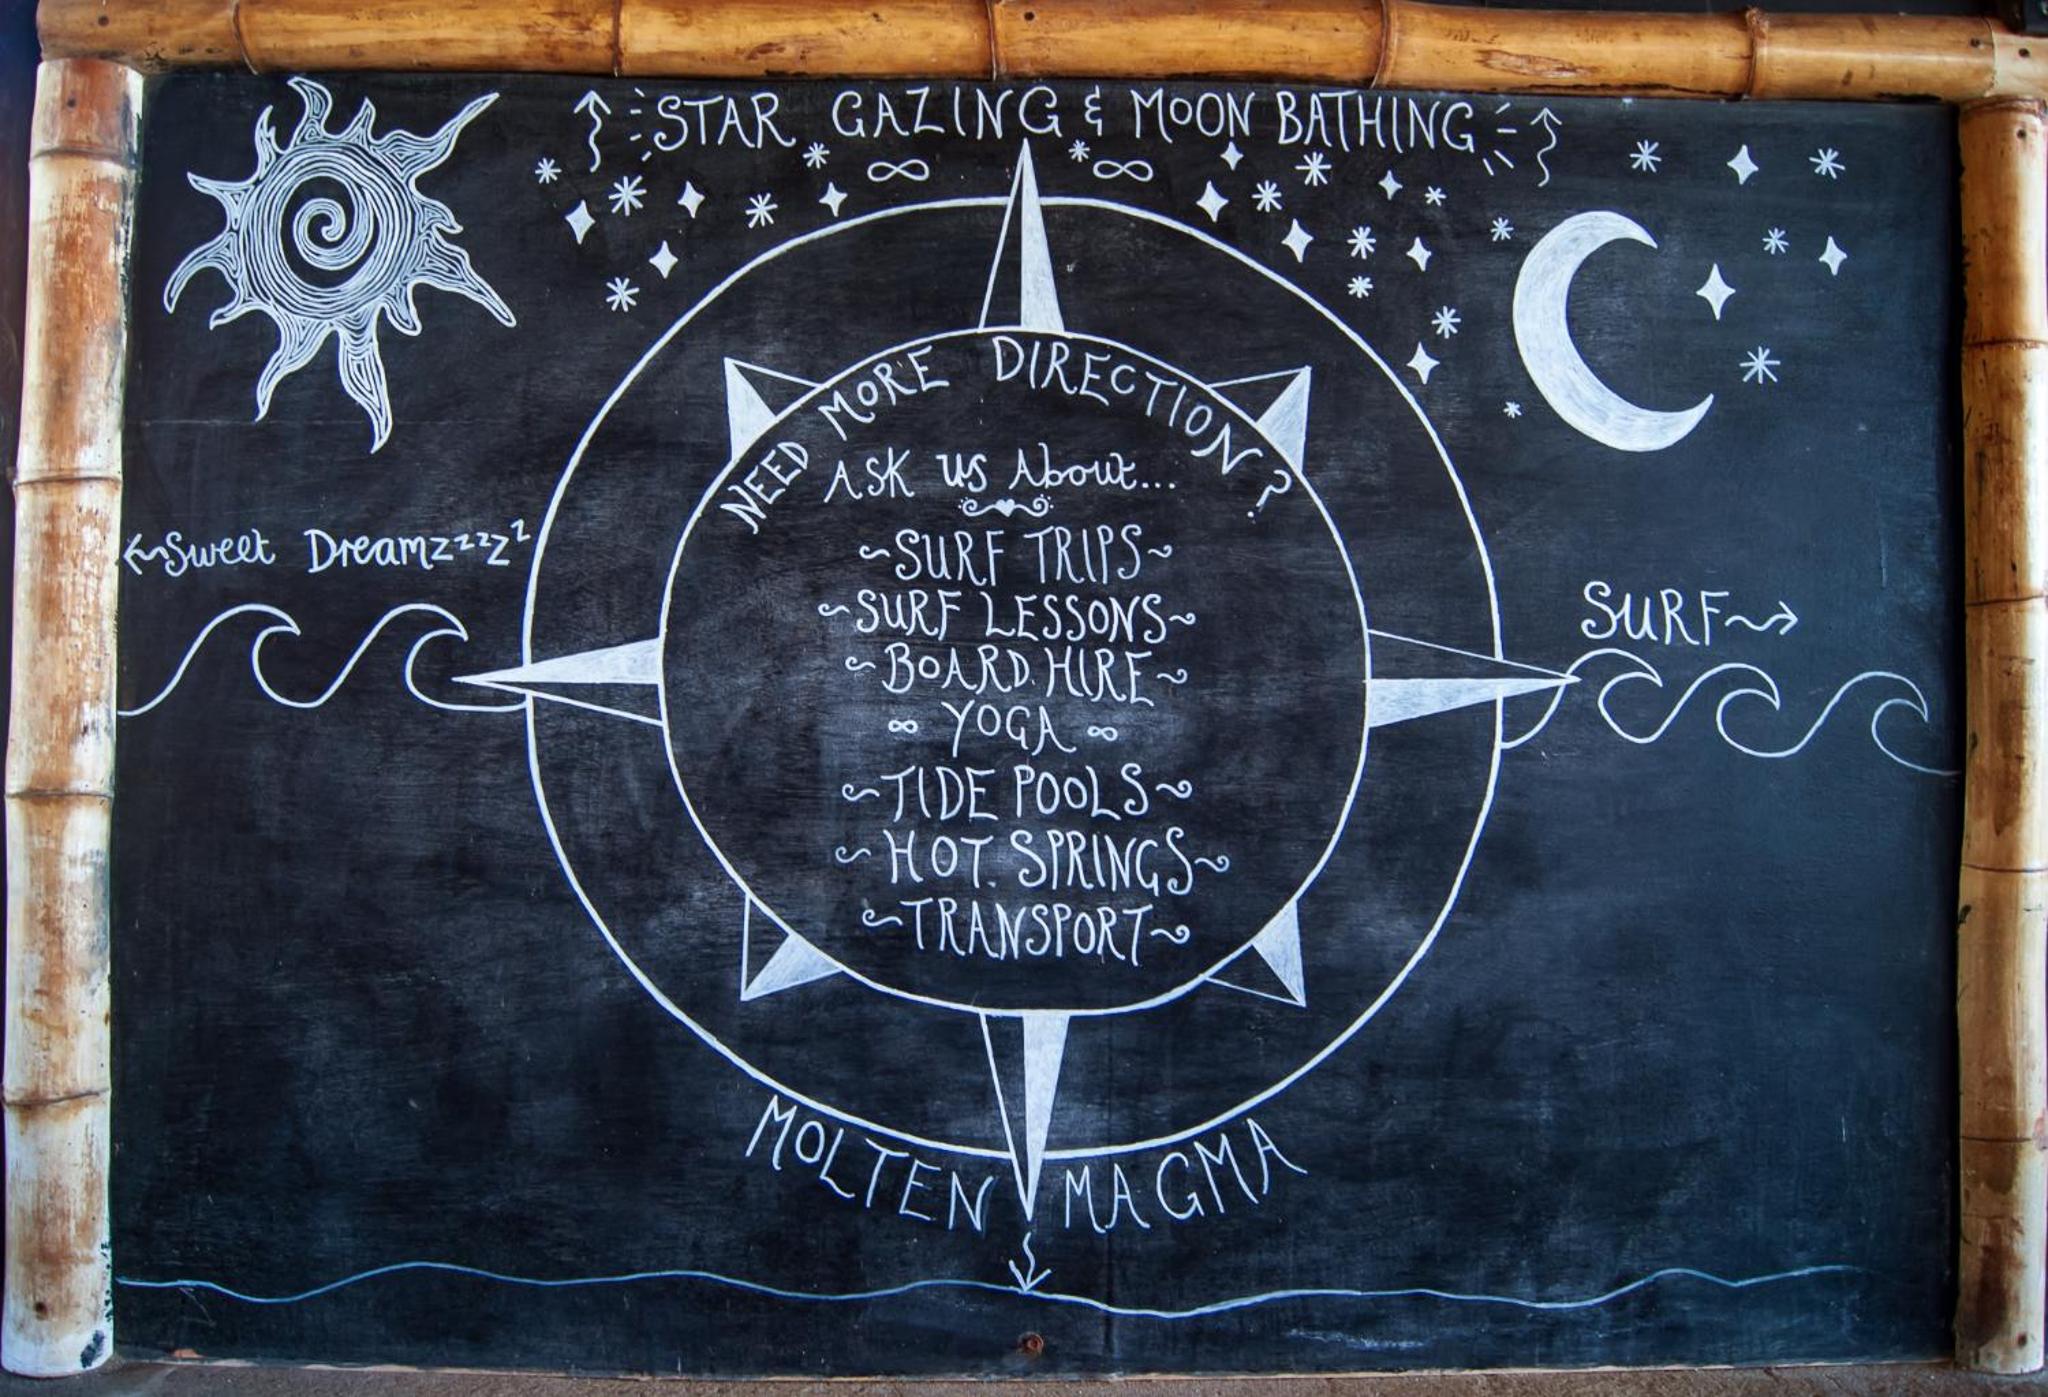 STAR GAZING & MOON BATHING
NEED MORE DIRECTION?
ASK us About...
~SURF TRIPS~
~SURF LESSONS~
~BOARD HIRE~
∞ YOGA ∞
~TIDE POOLS~
~HOT SPRINGS~
~TRANSPORT~
←Sweet Dreamzzzzzz
SURF→
MOLTEN MAGMA